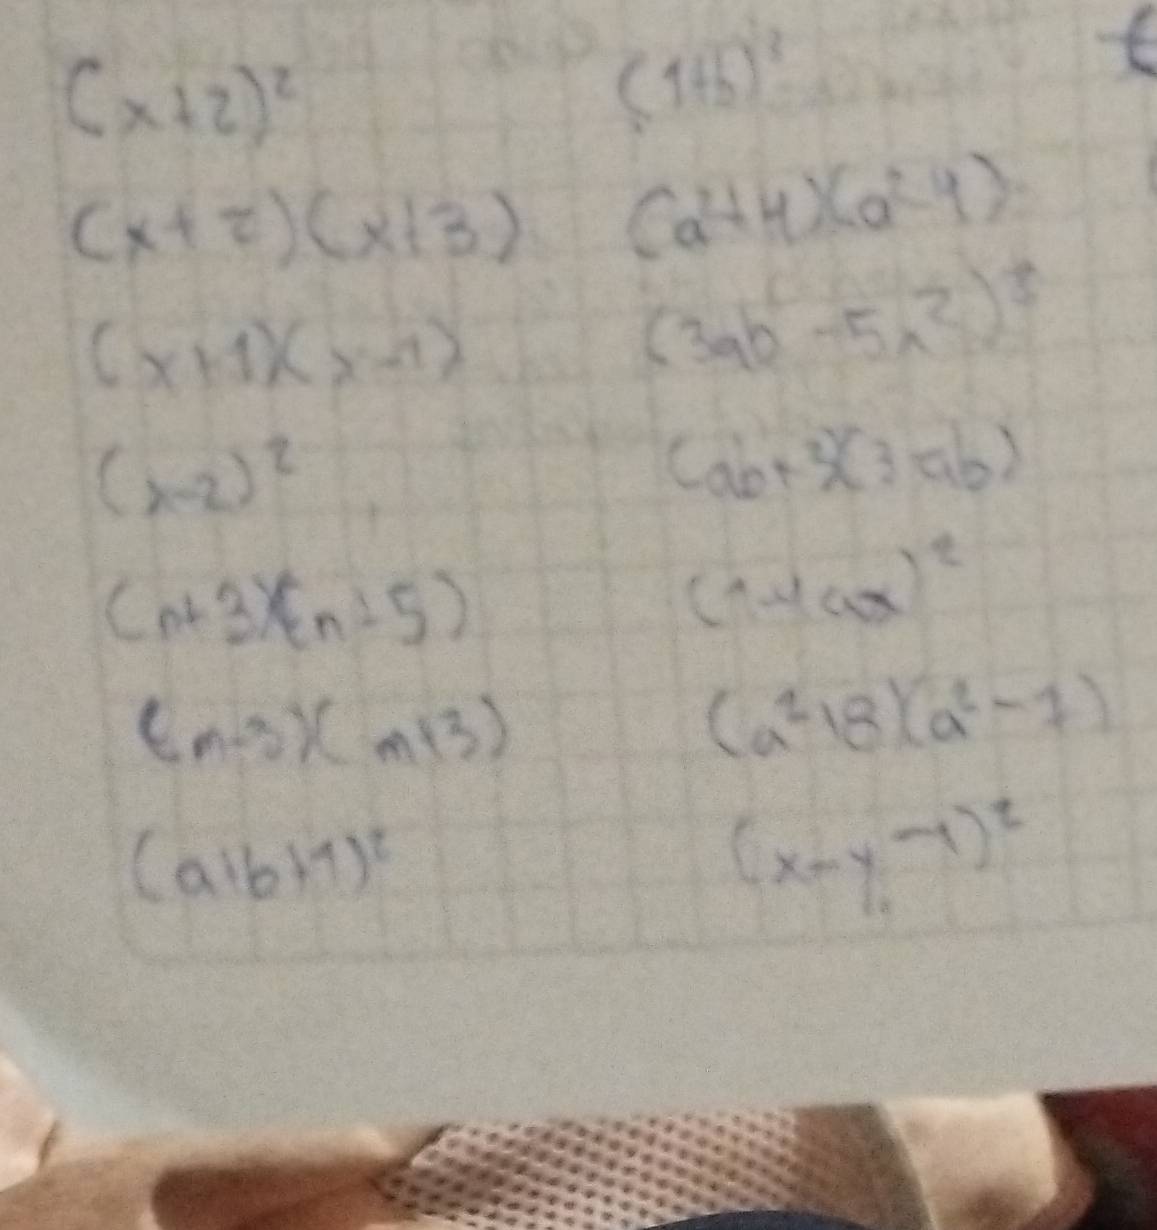 (x+2)² (1+b)³
(x+2)(x+3) (a²+4)(a²-4)
(x+1)(x-1) (3ab-5x²)²
(x-2)² (ab+3)(3-ab)
(n+3)(n+5) (1-4ax)²
(m-3)(m+3) (a²+8)(a²-7)
(a+b+1)² (x-y-1)²